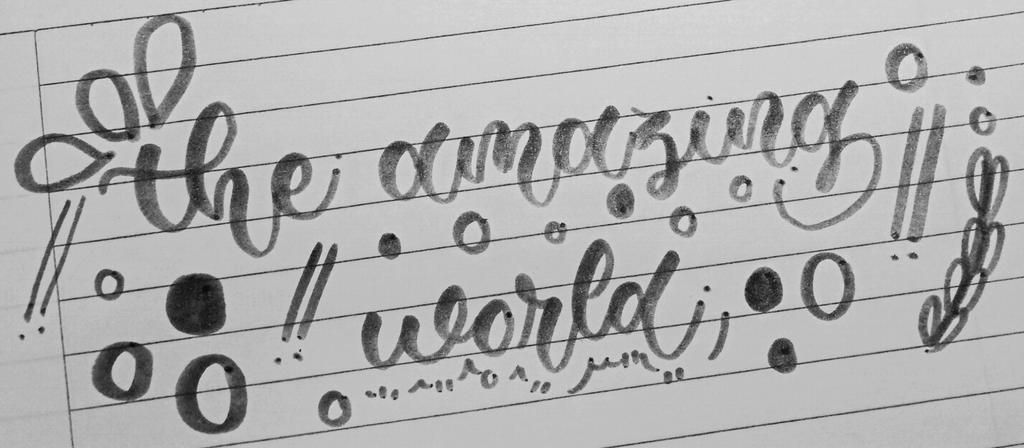 the amazing
world;